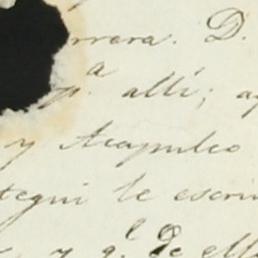 rrara. D.
pª. alli; a
y Acapulco
tegui le escri
y qᵉ. de ell